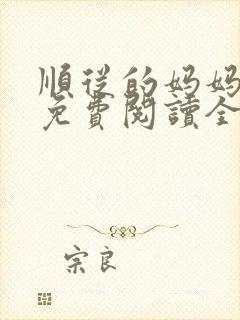 順從的妈妈
免費閱讀全
宗良